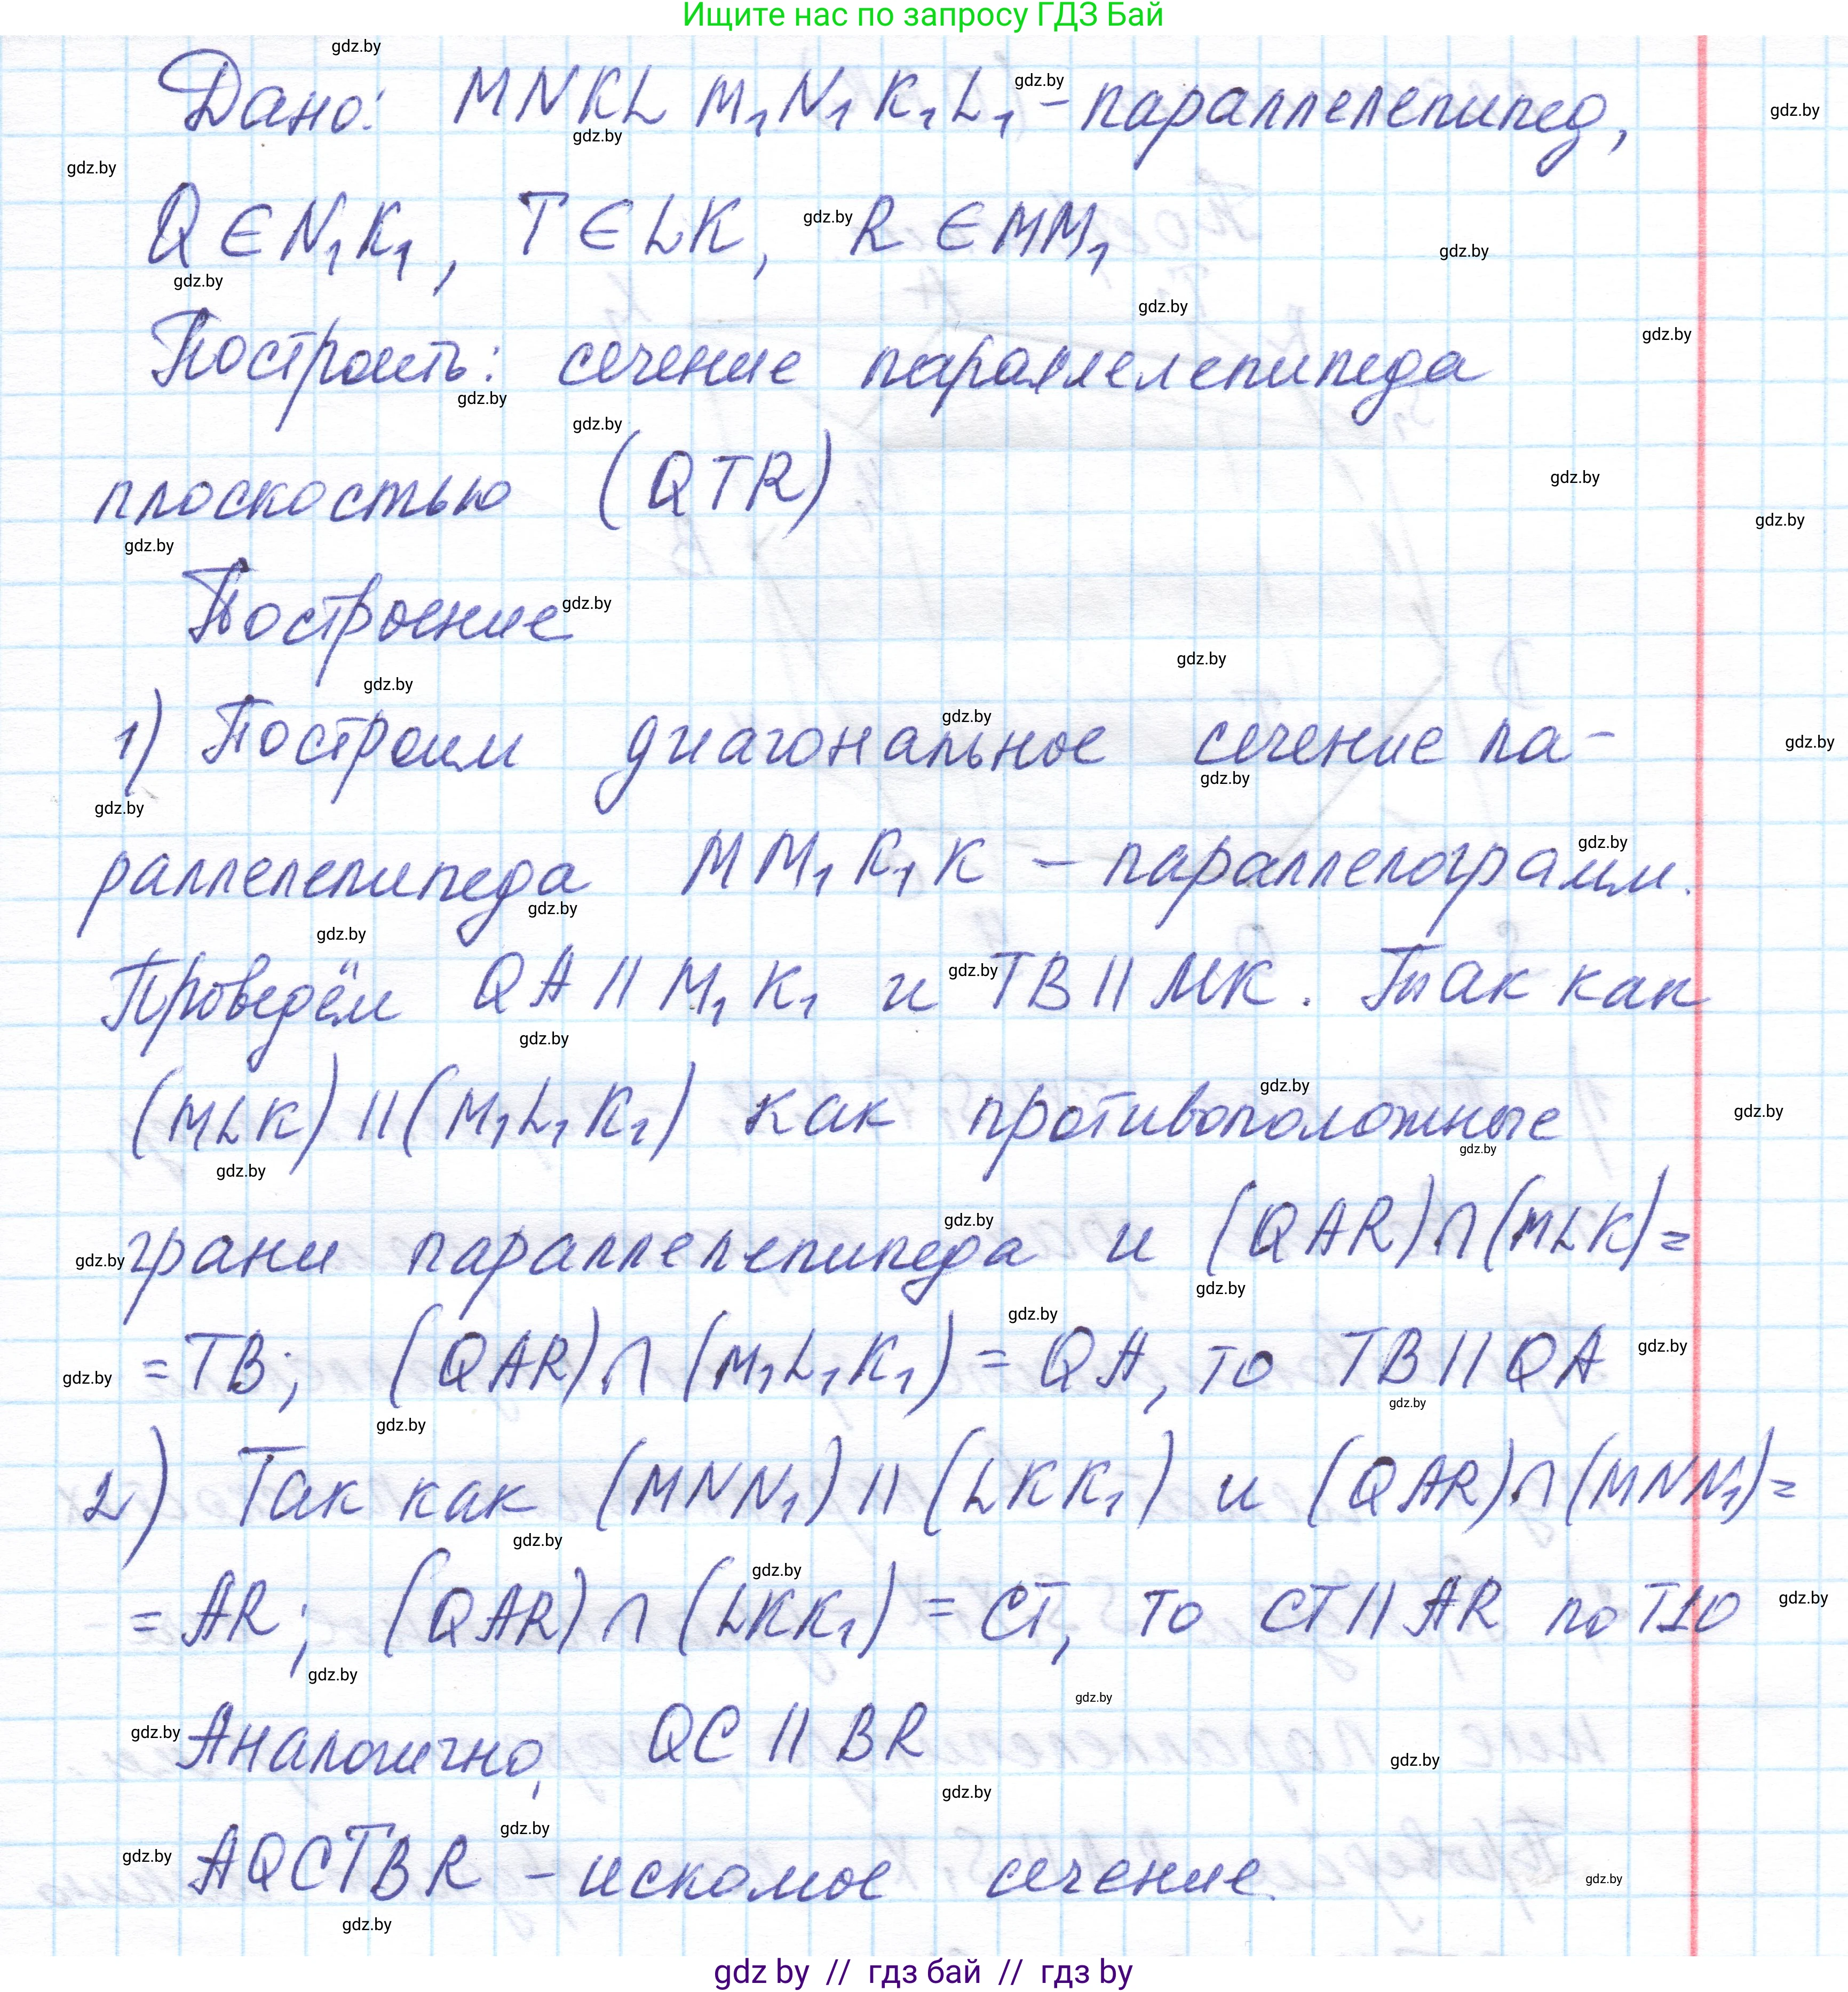 Ищите нас по запросу ГДЗ Бай
Дано: MNKLM₁N₁K₁L₁ - параллелепипед,
Q ∈ N₁K₁, T ∈ LK, R ∈ MM₁
Построить: сечение параллелепипеда
плоскостью (QTR)
Построение
1) Построим диагональное сечение па-
раллелепипеда MM₁K₁K – параллелограмм.
Проведём QA || M₁K₁ и TB || MK. Так как
(MLK) || (M₁L₁K₁) как противоположные
грани параллелепипеда и (QAR)∩(MLK)=
=TB; (QAR)∩(M₁L₁K₁)=QA, то TB || QA
2) Так как (MNN₁) || (LKK₁) и (QAR)∩(MNN₁)=
=AR; (QAR)∩(LKK₁)=CT, то CT || AR по T10
Аналогично, QC || BR
AQCTBR – искомое сечение.
gdz by // гдз бай // гдз by